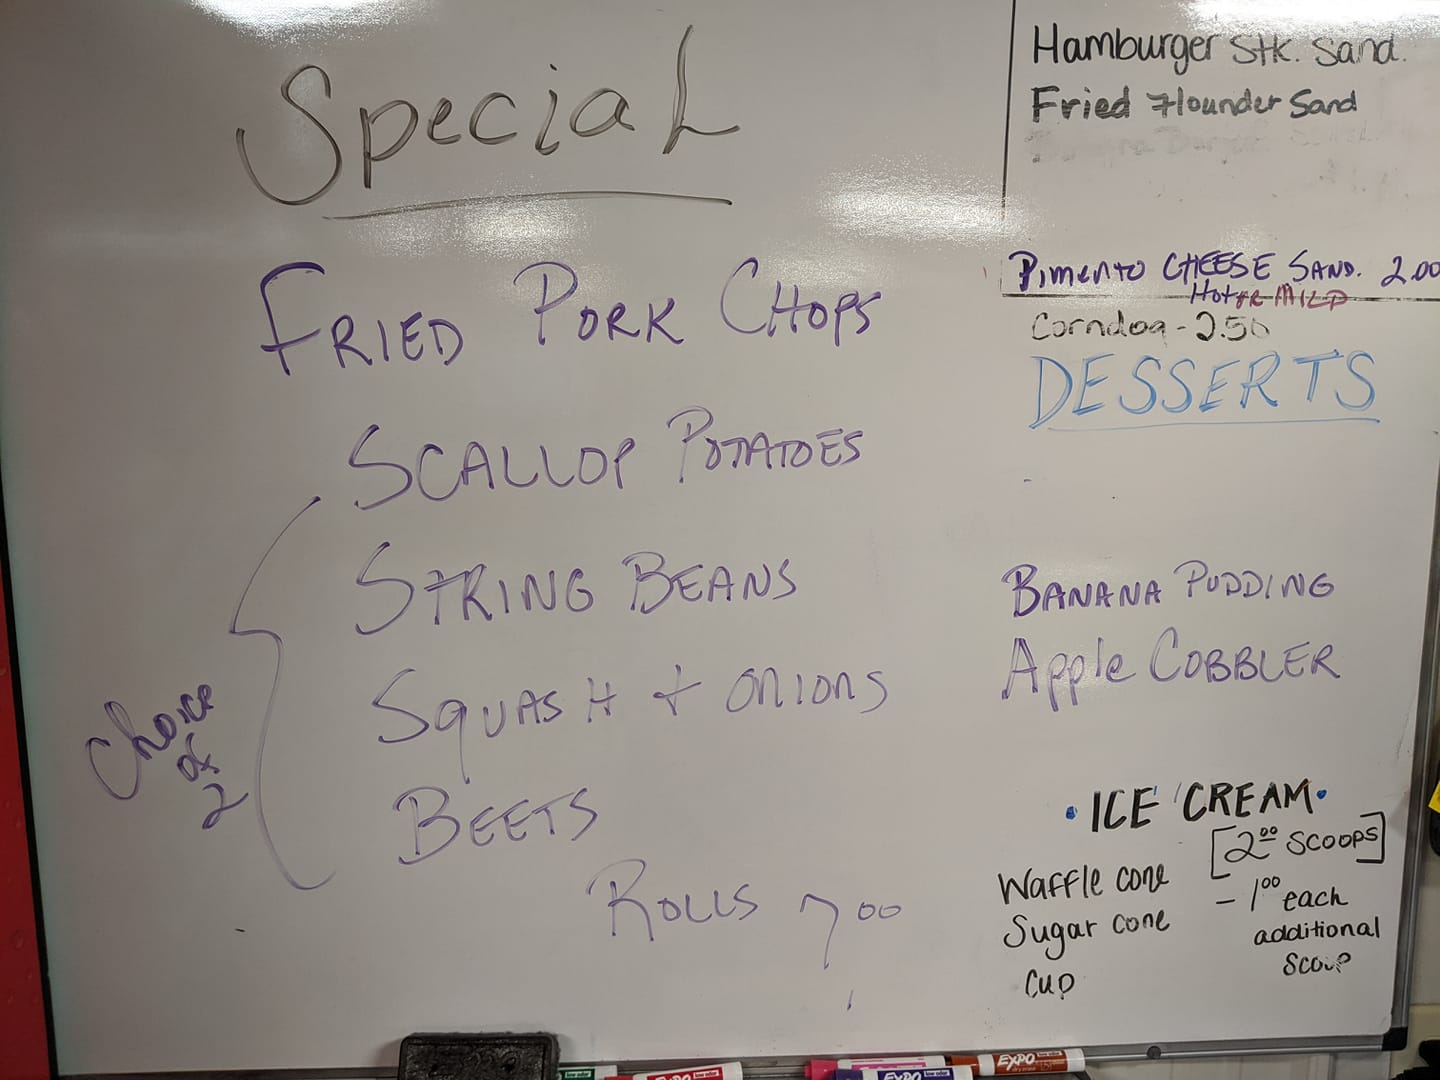 Special
FRIED PORK CHOPS
SCALLOP POTATOES
STRING BEANS
SQUASH + ONIONS
BEETS
Choice
of
2
ROLLS 7 00
Hamburger Stk. Sand.
Fried Flounder Sand
PIMENTO CHEESE SAND. 2.00
Hot OR MILD
Corndog - 2.50
DESSERTS
BANANA PUDDING
Apple COBBLER
• ICE CREAM •
[2.00 SCOOPS]
Waffle cone
- 1.00 each
Sugar cone
additional
scoop
cup
EXPO
EXPO
EXPO